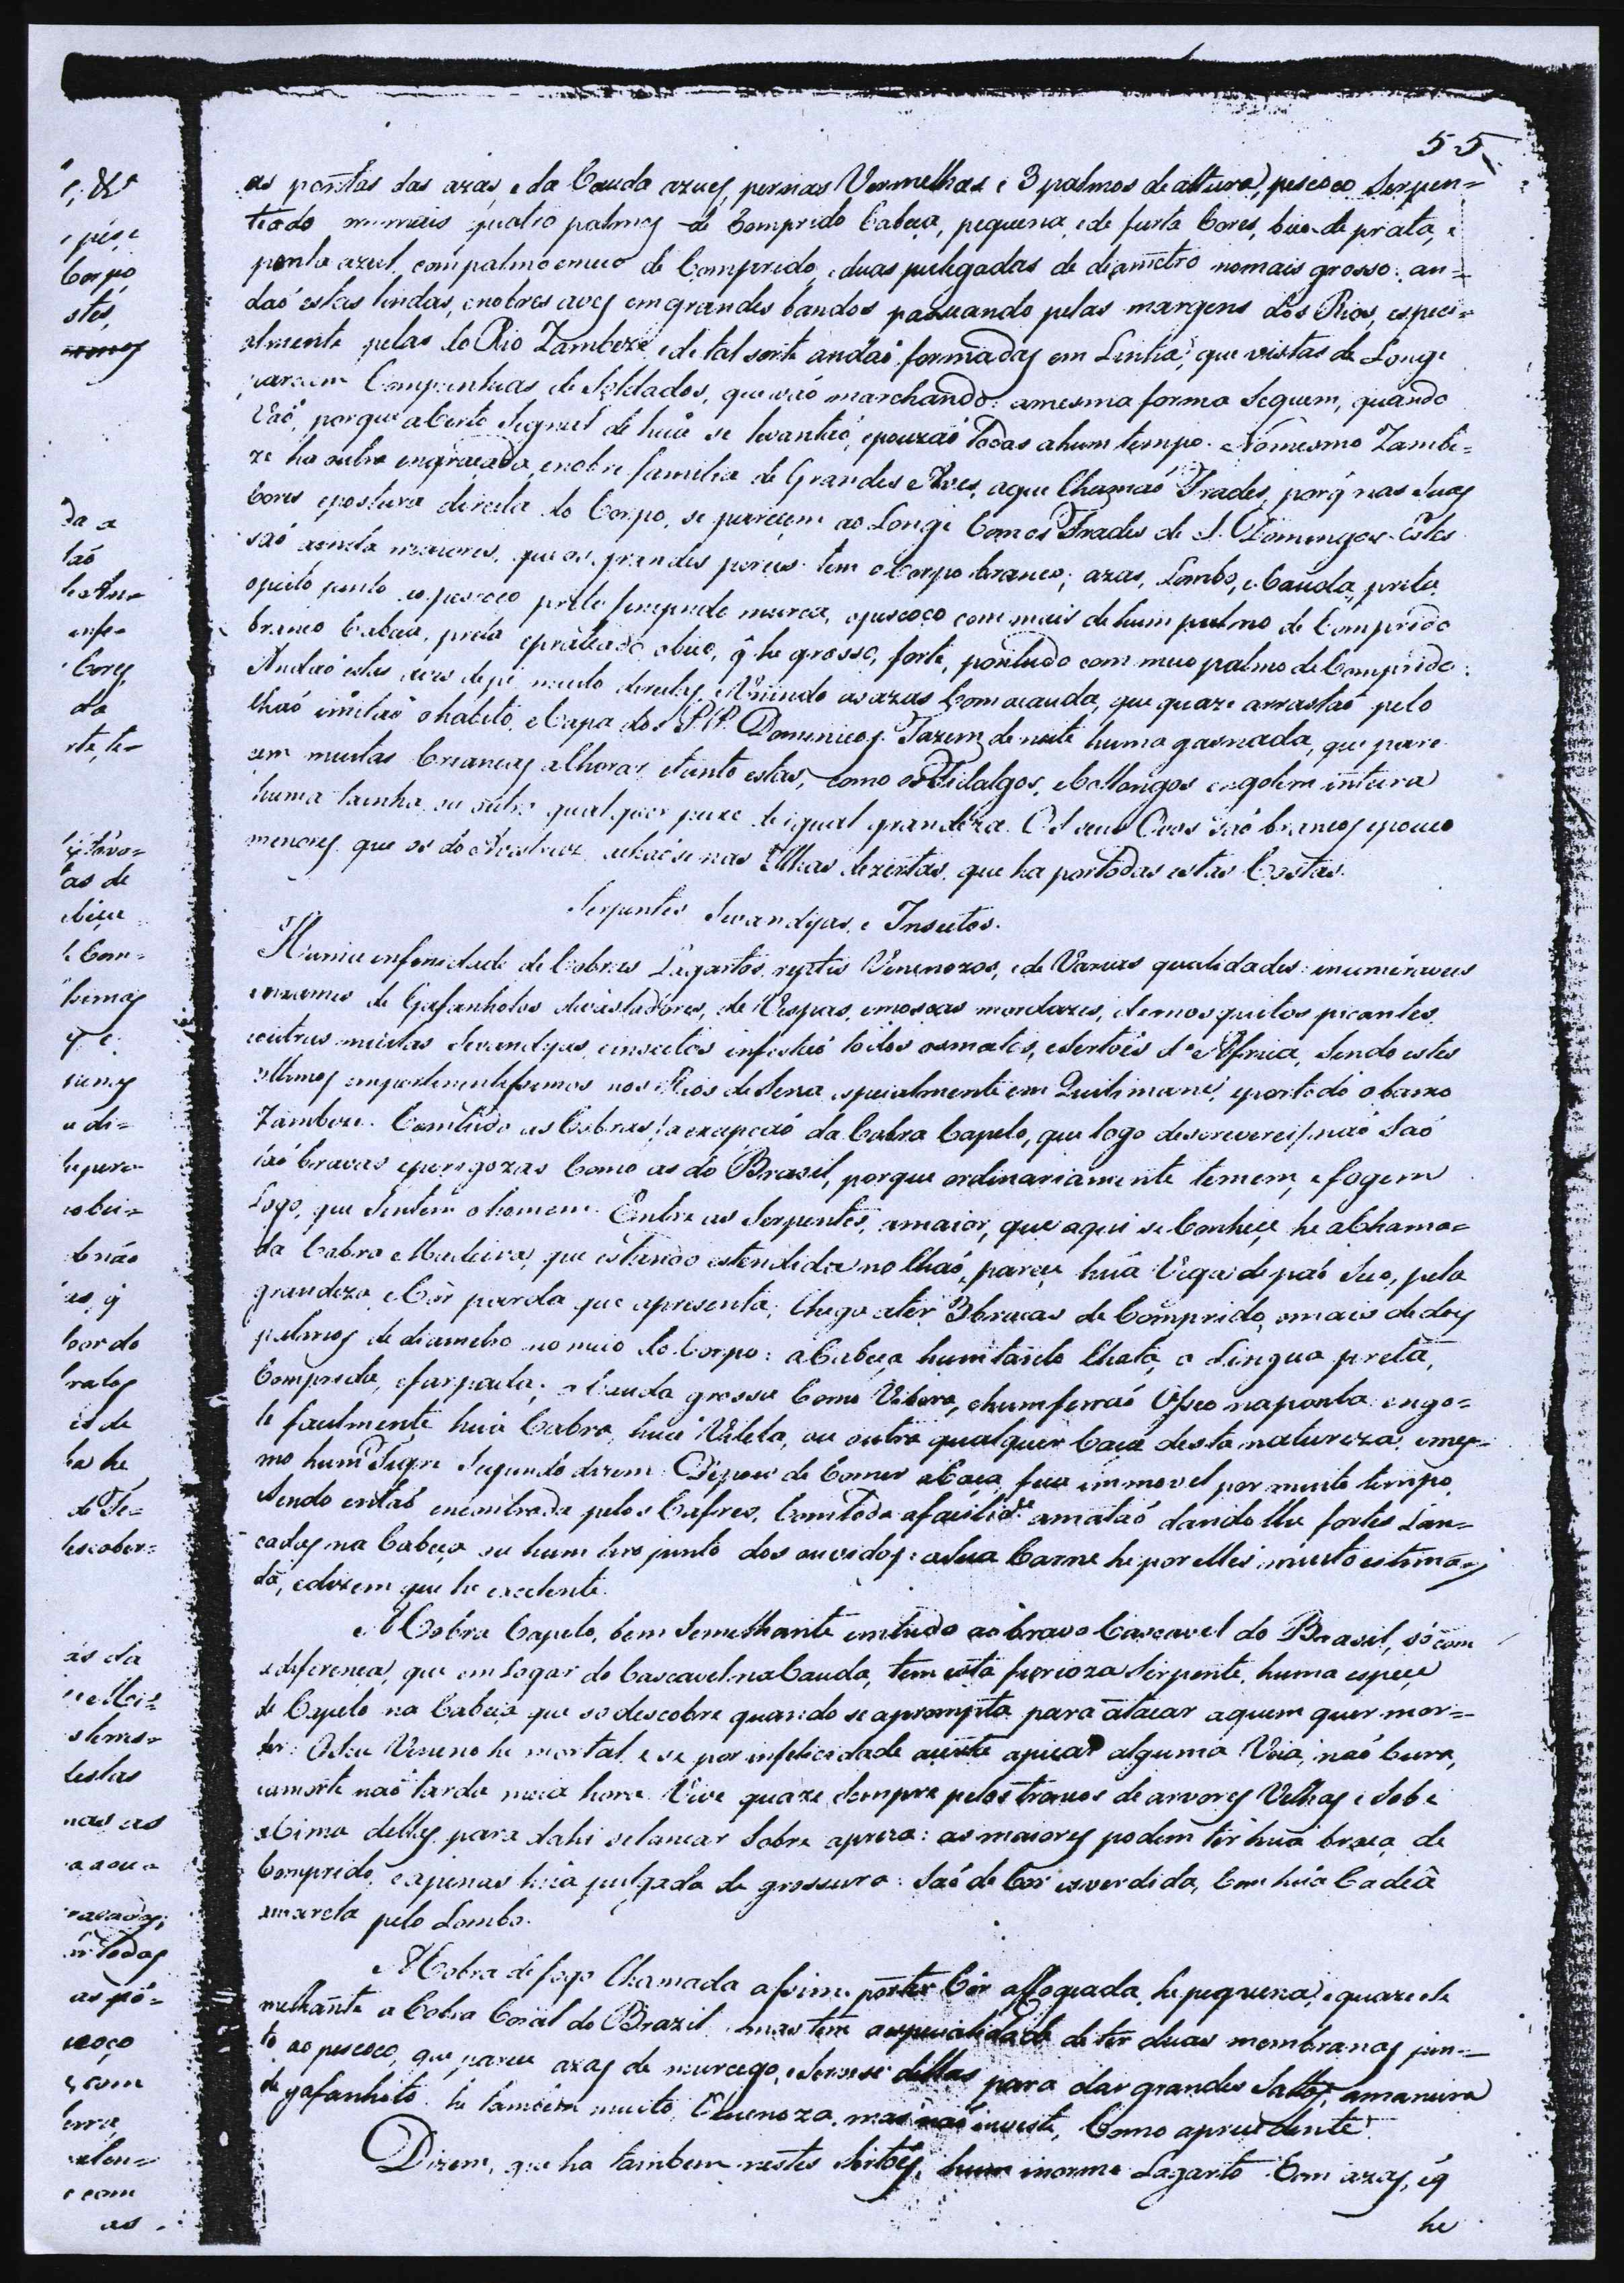 55
as pontas das azas, e da Cauda azuey, pernas Vermelhas e 3 palmos de altura, pescoço Serpen=
teado nomais quatro palmoy de Comprido Cabeça, pequena, e de furta Cores, bico de prata, e
ponta azul, com palmo emeio de Comprido, e duas pulegadas de diametro nomais grosso: an=
daó estas lindas, enobres avey em grandes bandos passeando pelas margens dos Rios, especi=
almente pelas do Rio Zambeze, e de tal sorte andaó formaday em Linha, que vistas de Longe
parecem Companhias de Soldados, que vaó marchando: amesma forma Seguem, quando
Vaó, porque a Certo Signal de huã se levantaó, epouzaó Todas ahum tempo. Nomesmo Zambe=
ze ha outra engraçada, enobre familia de Grandes Aves, aque Chamaó Frades, porq̃ nas Suas
Cores epostura direita do Corpo, se parecem ao Longe Com os Frades de S. Domingos. Estes
saó ainda maiores, que os grandes perus: tem o Corpo branco; azas, Lombo, e Cauda, preta,
opeito junto ao pescoço preto fingindo murça, opescoço com mais de hum palmo de Comprido
branco Cabeça, preta eprateado obico, q̃ he grosso, forte, pontudo com meio palmo de Comprido:
Andaó estas aves depé muito direitas, eUnindo as azas Com acauda, que quaze arrastaó pelo
Chaó imitaó o habito, eCapa dos P.P. Dominicoy. Fazem de noite huma gasnada, que pare=
cem muitas Criançay alhoras, etanto estas, como os Fidalgos, e Collongos engolem inteira
huma tainha ou outro qualquer peixe de igual grandeza. Os seus Ovos saó brancoy epouco
menorey que os do Avestruz achaóse nas Ilhas dezertas, que ha portodas estas Costas.
Serpentes Sevandijas, e Insectos.
Huma infinidade de Cobras Lagartos reptis Venenozos, e de Varias qualidades: inumeraveis
enxames de Gafanhotos devastadores, de Vespas, emoscas mordazes, demosquitos picantes,
eoutras muitas Sevandijas, einsectos infestaó todos osmatos, eSertoés d'Africa, Sendo estes
ultimoy impertinentissimos nos Rios de Sena, especialmente em Quilimane, eportodo o baixo
Zambeze. Comtudo as Cobras /a excepçaó da Cobra Capelo, que logo descreverei/ naó Saó
taó bravas eperigozas Como as do Brasil, porque ordinariamente temem, e fogem
Logo, que Sentem o homem. Entre as Serpentes, amaior, que aqui se Conhece he a Chama=
da Cobra Madeira, que estando estendida no Chaó, parece huã Viga de paó Seco, pela
grandeza, e Côr parda que apresenta: Chega ater 3 braças de Comprido, emais dedoy
palmoy de diametro no meio do Corpo: aCabeça hum tanto Chata, a Lingua preta,
Comprida, efarpada; a Cauda grossa Como Vibora, ehumferraó Osseo naponta: engo=
le facilmente huã Cabra, huã Vitela, ou outra qualquer Caça desta natureza, emes=
mo hum Tigre Segundo dizem. Depois de Comer aCaça, fica immovel por muito tempo,
Sendo entaó encontrada pelos Cafres, Comtoda afacilid.e amataó dandolhe fortes Lan=
çaday na Cabeça ou hum tiro junto dos ouvidos: aSua Carne he por elles muito estima=
da, edizem que he excelente.
A Cobra Capelo, bem Semelhante emtudo ao bravo Cascavel do Brasil, só com
adiferença, que em Logar do Cascavel na Cauda, tem esta furioza Serpente, huma especie
de Capelo na Cabeça que só descobre quando se aprompta para atacar aquem quer mor=
der: OSeu Veneno he mortal, e se por infelicidade acerta apicar alguma Veia, naó Cura,
eamorte naó tarda meia hora. Vive quaze Sempre pelos troncos de arvorey Velhay e Sobe
aCima delles, para dahi selançar Sobre apreza: as maiorey podem ter huã braça de
Comprido, eapenas huã pulgada de grossura: Saó de Cor esverdida, Com huã Cadêa
amarela pelo Lombo.
A Cobra de fogo Chamada assim porter Côr affogueada, he pequena, e quaze se=
melhante a Cobra Coral do Brazil, mas tem aespecialidade de ter duas membranay jun=
to ao pescoço, que parece azay de murcego, eServese dellas para dar grandes Saltos, amaneira
de gafanhoto: he tambem muito Venenoza, mas naó investe, Como aprecedente.
Dizem, que ha tambem nestes Sertoẽs, hum inorme Lagarto Com azay, eq̃
he